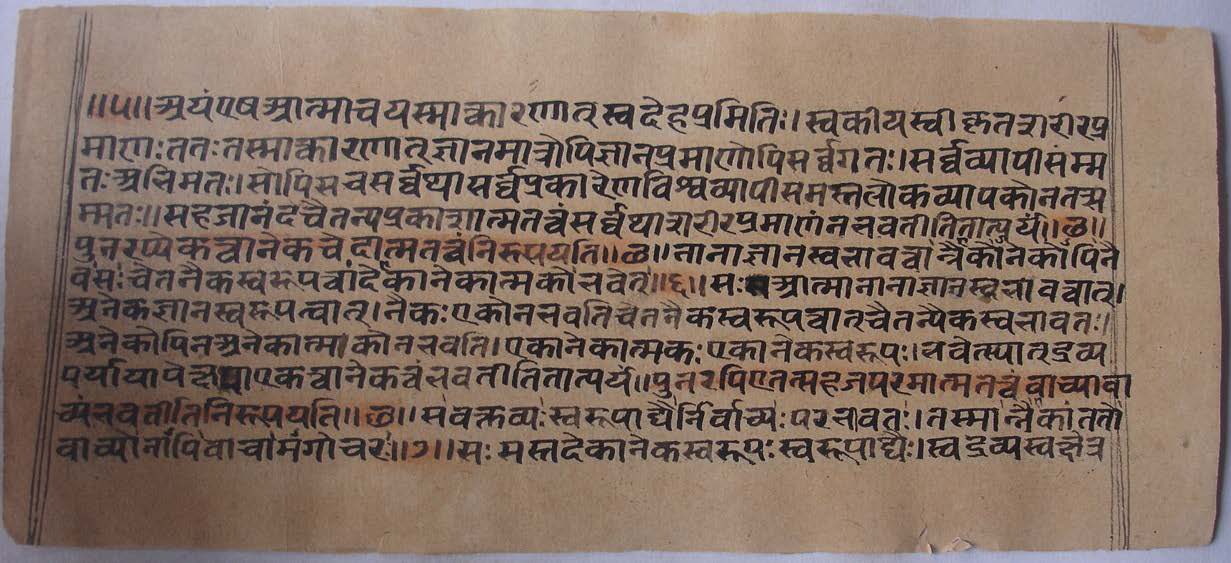 ॥५॥ अयं एष आत्मा च यस्मात्कारणात् स्वदेहप्रमितिः। स्वकीयस्वीकृतशरीरप्र
माणः ततः तस्मात्कारणात् ज्ञानमात्रोपि ज्ञानप्रमाणोपि सर्व्वगतः। सर्व्वव्यापी संम्म
तः अभिमतः। सोपि स च सर्व्वथा सर्व्वप्रकारेण विश्वव्यापी समस्तलोकव्यापको न तत् स
म्मतः॥ सहजानंदचैतन्यप्रकाशात्मतत्वं सर्व्वथा शरीरप्रमाणं न भवतीति तात्पर्यं॥छ॥
पुनरप्येकत्वानेकत्वं तदात्मतत्वं निरूपयति॥छ॥ नानाज्ञानस्वभावत्वान्नैकोनेकोपि नै
व सः चेतनैकस्वरूपत्वादेकानेकात्मको भवेत्॥६॥ सः आत्मा नानाज्ञानस्वभावत्वात्।
अनेकज्ञानस्वरूपत्वात्। नैकः एको न भवति चेतनैकस्वरूपत्वात् चैतन्यैकस्वभावतः।
अनेकोपि न अनेकात्मको न भवति। एकानेकात्मकः एकानेकस्वरूपः। भवेत् स्यात् द्रव्य
पर्यायापेक्षया एकत्वानेकत्वं भवतीति तात्पर्यं॥ पुनरपि एतत्सहजपरमात्मतत्वं वाच्यावा
च्यं भवतीति निरूपयति॥छ॥ स वक्तव्यः स्वरूपाद्यैर्निर्वाच्यः परभावतः। तस्मान्नैकांततो
वाच्यो नापि वाचामगोचरः॥७॥ सः सः तदेकानेकस्वरूपः स्वरूपाद्यैः। स्वद्रव्यस्वक्षेत्र